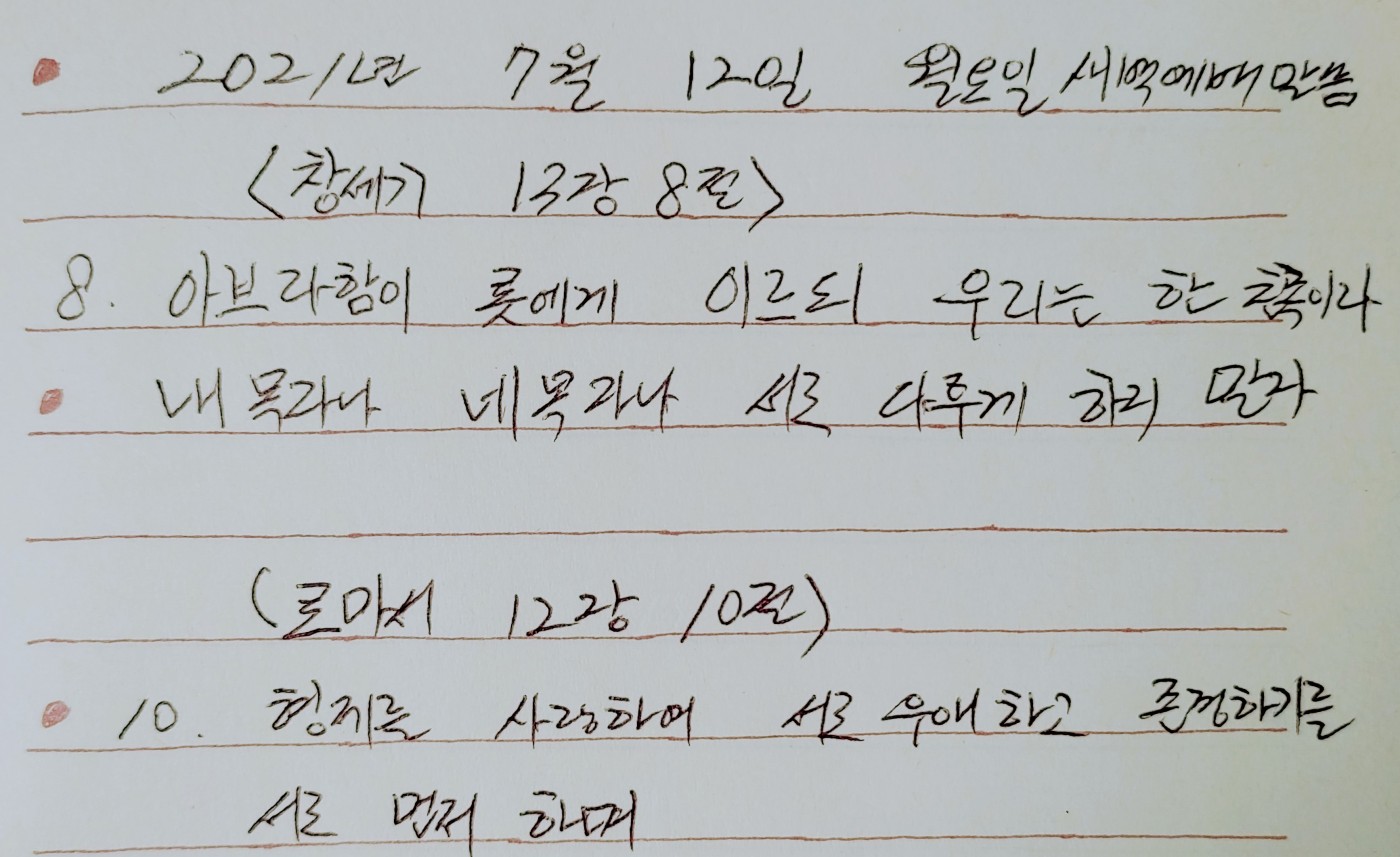 2021년 7월 12일 월요일 새벽예배 말씀
<창세기 13장 8절>
8. 아브라함이 롯에게 이르되 우리는 한 친족이라
내 목자나 네 목자나 서로 다투게 하지 말자
(로마서 12장 10절)
10. 형제를 사랑하여 서로 우애하고 존경하기를
서로 먼저 하며